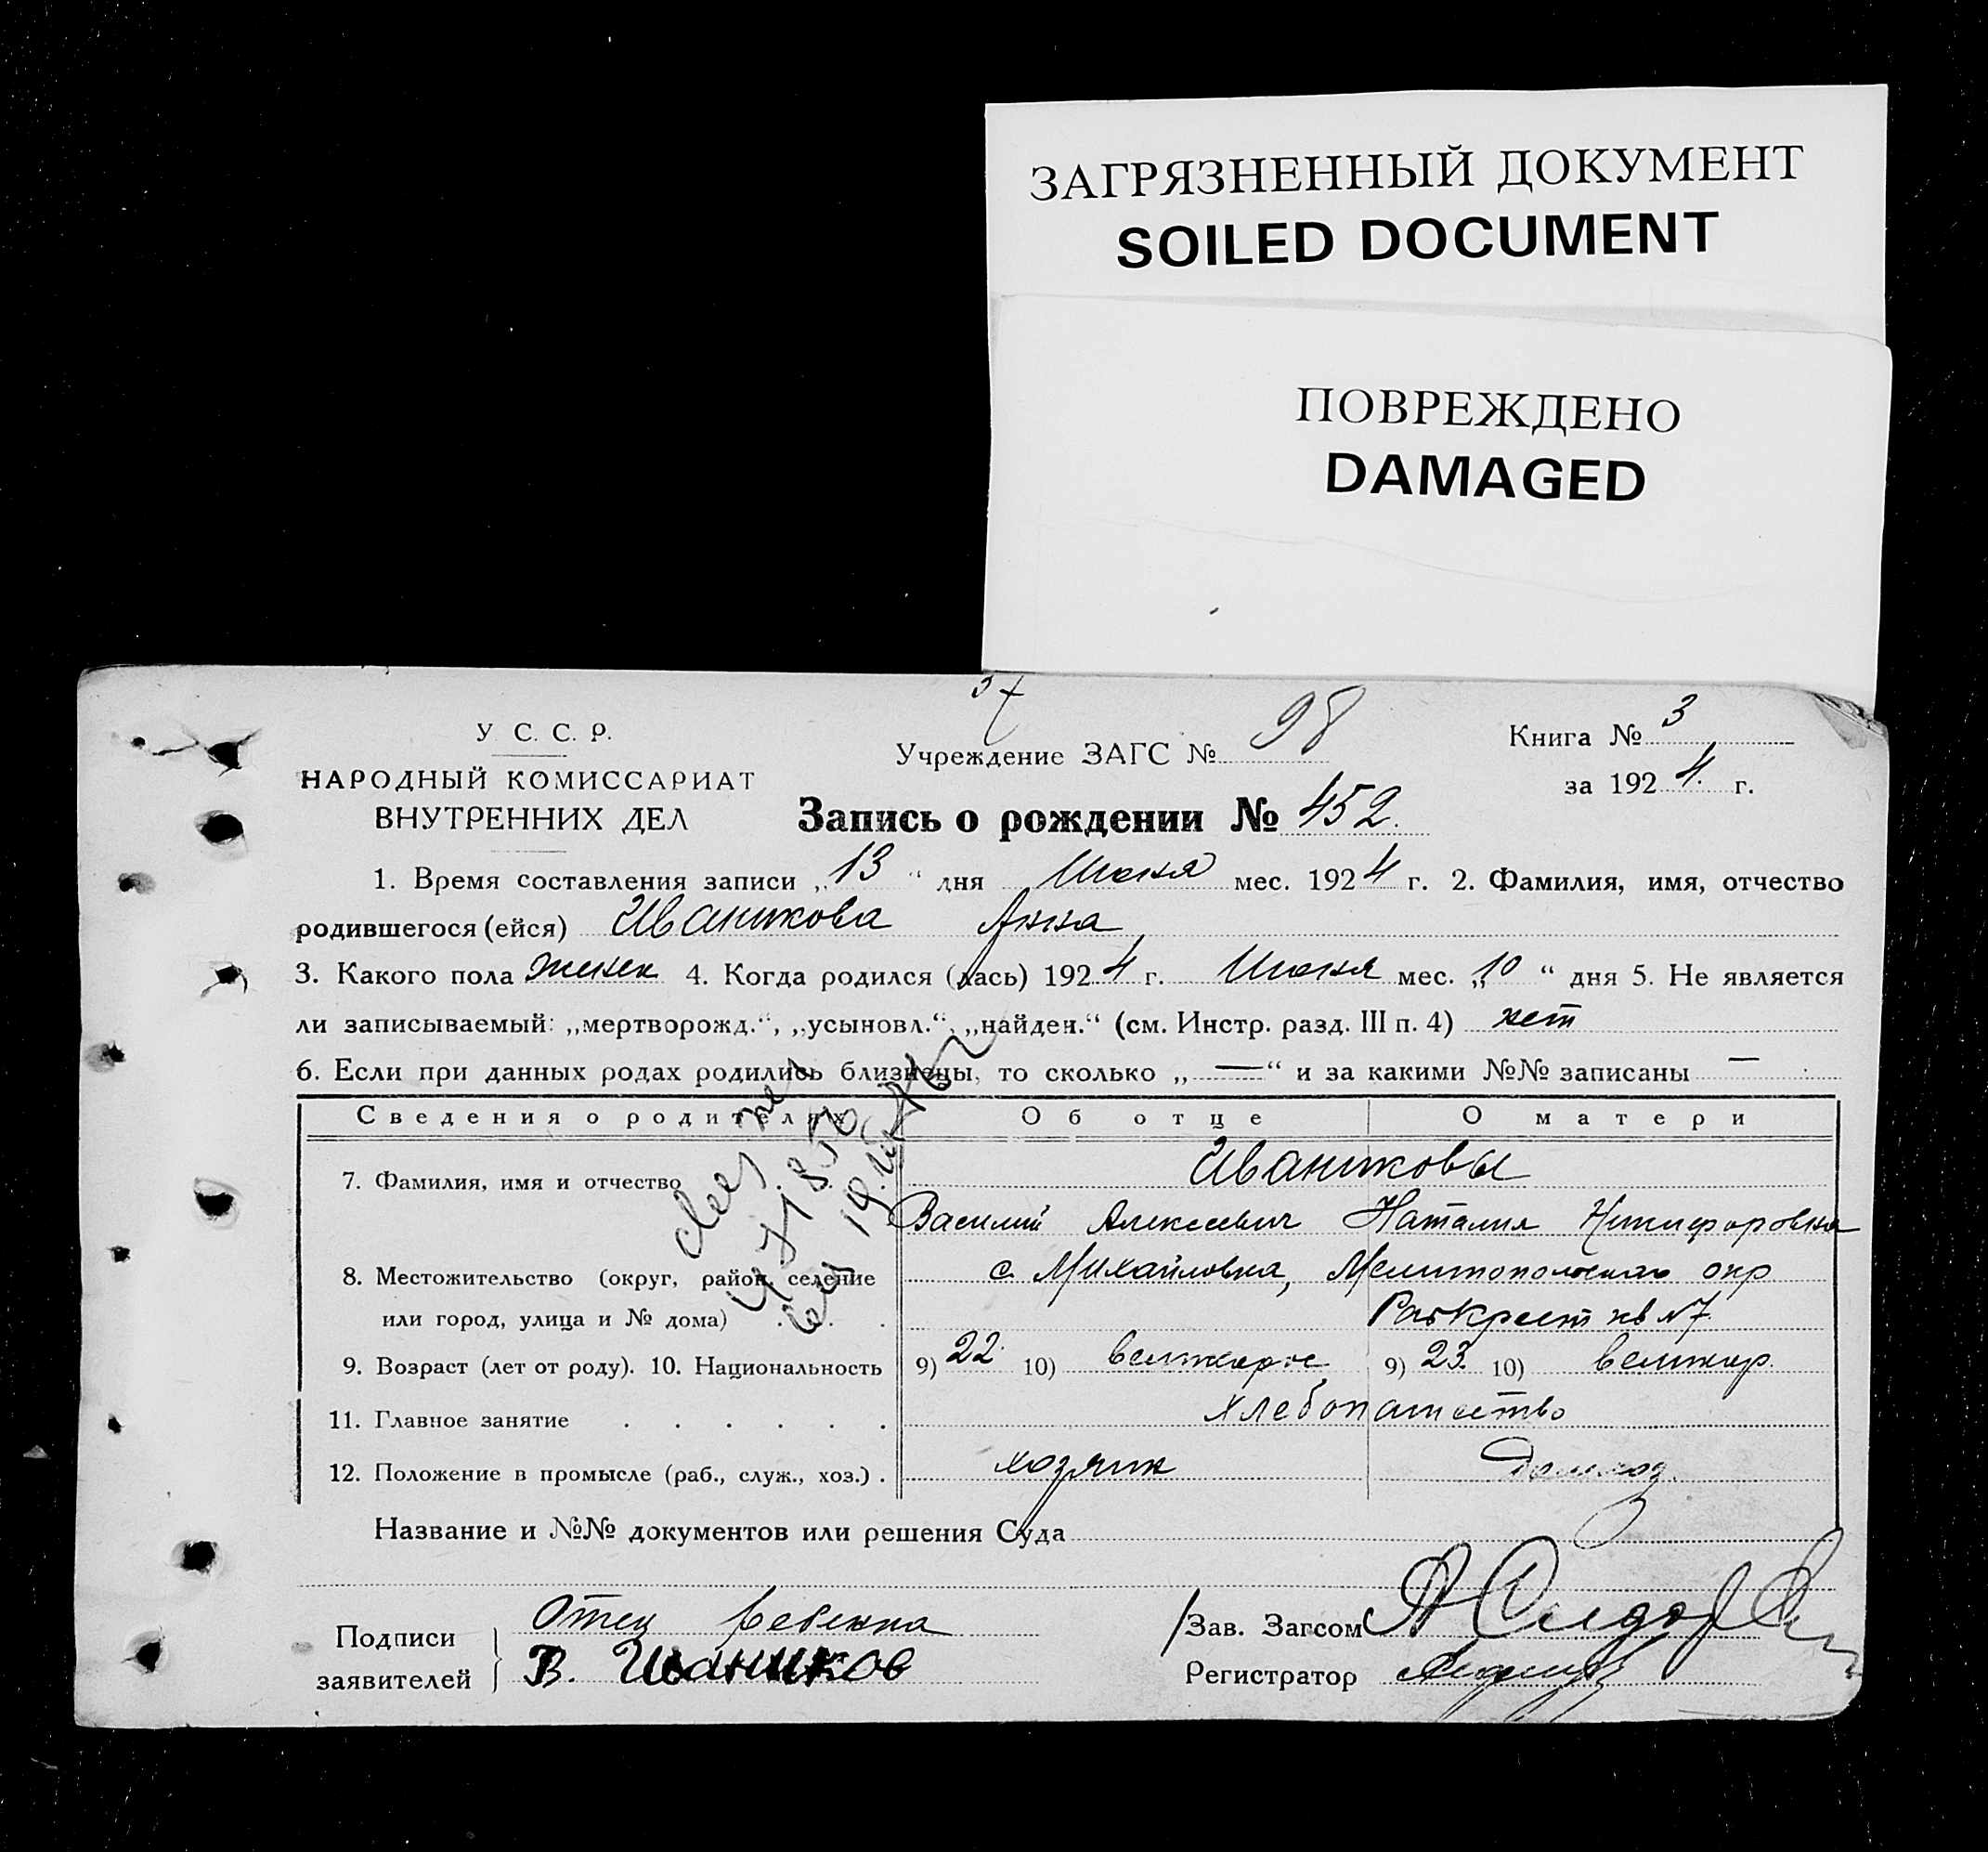 ЗАГРЯЗНЕННЫЙ ДОКУМЕНТ
SOILED DOCUMENT
ПОВРЕЖДЕНО
DAMAGED
У С. С. Р.
НАРОДНЫЙ КОМИССАРИАТ
ВНУТРЕННИХ ДЕЛ
Учреждение ЗАГС № 98
Книга № 3
за 1924 г.
Запись о рождении № 452.
1. Время составления записи „13“ дня Июня мес. 1924 г. 2. Фамилия, имя, отчество
родившегося (ейся) Иваникова Анна
3. Какого пола женск 4. Когда родился (лась) 1924 г. Июня мес. „10“ дня 5. Не является
ли записываемый: „мертворожд.“, „усыновл.“, „найден.“ (см. Инстр. разд. III п. 4) нет
6. Если при данных родах родились близнецы, то сколько „—“ и за какими №№ записаны —
Сведения о родителях Об отце О матери
7. Фамилия, имя и отчество Иваниковы
Василий Алексеевич Наталия Никифоровна
8. Местожительство (округ, район, селение с. Михайловка, Мелитопольского окр
или город, улица и № дома) кв №7.
9. Возраст (лет от роду). 10. Национальность 9) 22 10) великорос 9) 23. 10) великор.
11. Главное занятие хлебопашество
12. Положение в промысле (раб., служ., хоз.) хозяин домхоз.
Название и №№ документов или решения Суда
Подписи Отец ребенка
заявителей В. Иваников
Зав. Загсом
Регистратор